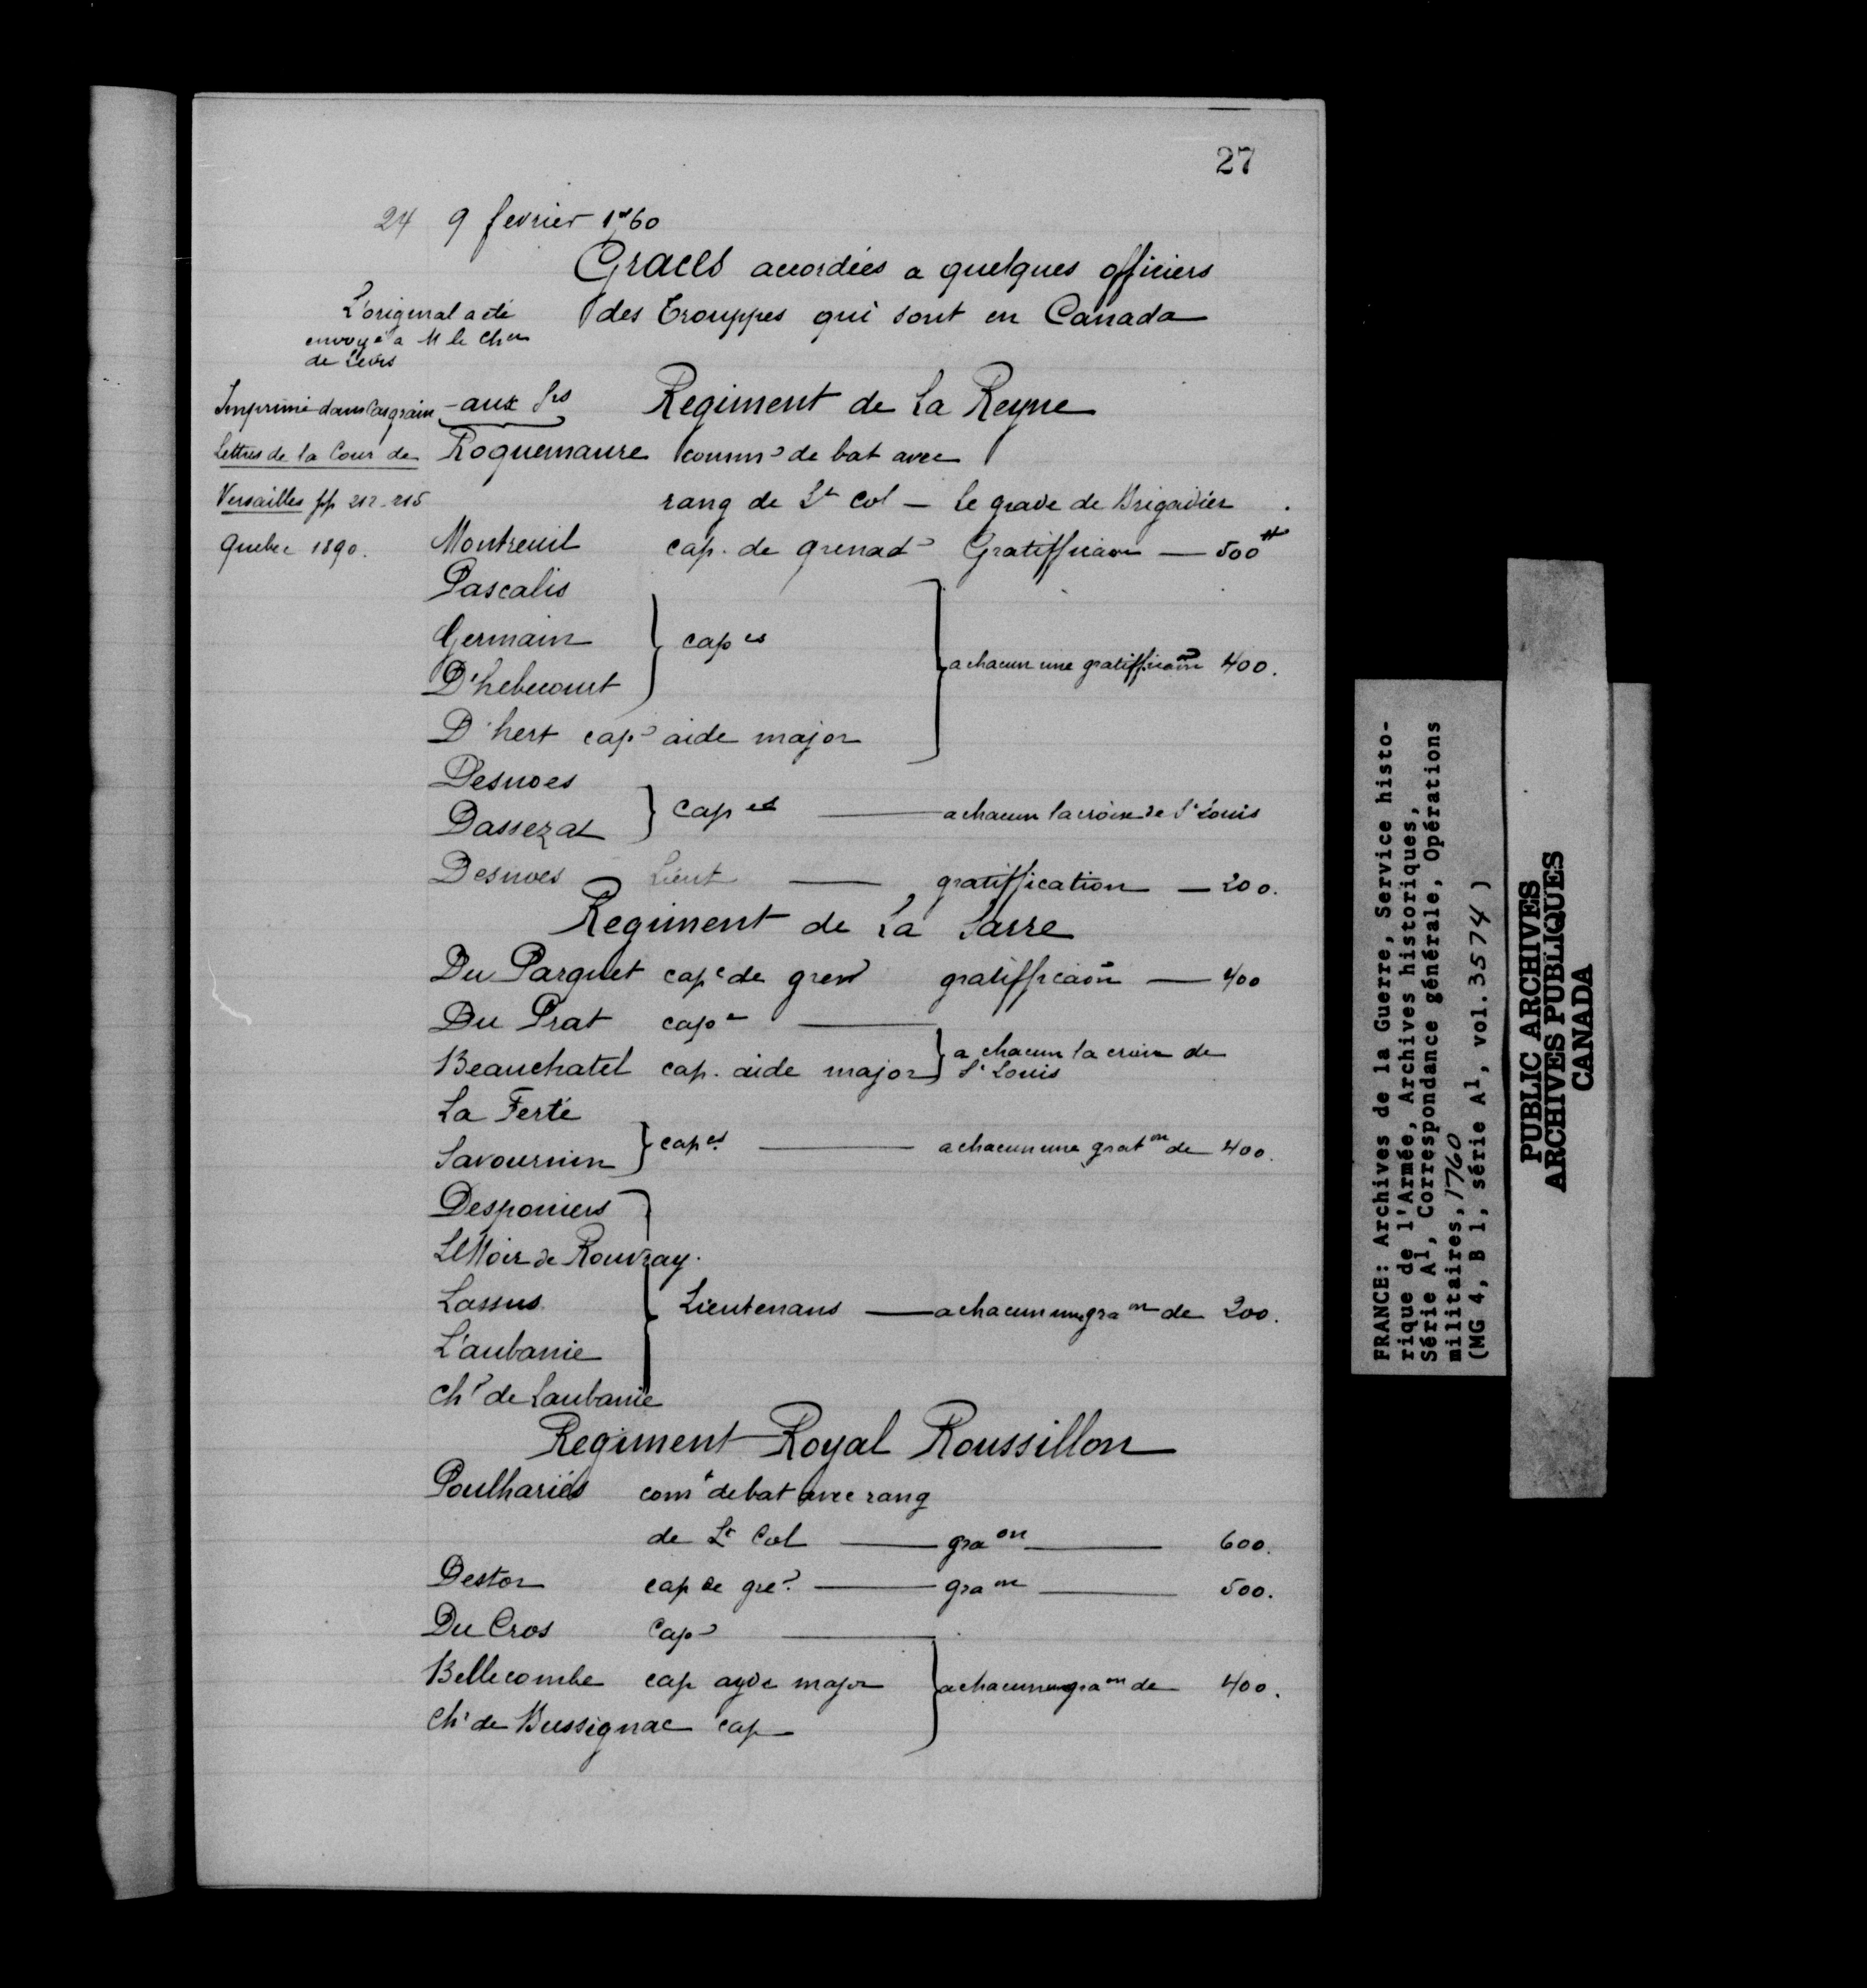 27
24 9 fevrier 1760
Graces accordées a quelques officiers
des Trouppes qui sont en Canada
L'original a eté
envoyé a M le Cher
de Levis
Imprimé dans Casgrain
Lettres de la Cour de
Versailles pp 212-215
Quebec 1890.
aux Srs Regiment de La Reyne
Roquemaure comm de bat avec
rang de Lt Col — le grade de Brigadier
Montreuil cap. de grenad Gratifficaon — 500 ₶
Pascalis
Germain } cap es
D'hebecourt
} a chacun une gratifficaon 400.
D'hert cap aide major
Desnoes
Dassezat } Cap es — a chacun la croix de St Louis
Desnoes Lieut — gratiffication — 200.
Regiment de La Sarre
Du Parquet cape de gren gratifficaon — 400
Du Prat cape —
Beauchatel cap. aide major } a chacun la croix de
St Louis
La Ferté
Savournin } capes — a chacun une grat on de 400.
Desponiers
Le Noir de Rouvray.
Lassus } Lieutenans — a chacun une gra on de 200.
L'aubanie
Chr de Laubanie
Regiment Royal Roussillon
Poulhariés comt de bat avec rang
de Lt Col — gra on — 600.
Destor cap de gre — gra on — 500.
Du Cros Cap —
Bellecombe cap ayde major } a chacun une gra on de 400.
Chr de Bussignac cap
FRANCE: Archives de la Guerre, Service histo-
rique de l'Armée, Archives historiques,
Série A1, Correspondance générale, Opérations
militaires, 1760
(MG 4, B 1, série A1, vol. 3574)
PUBLIC ARCHIVES
ARCHIVES PUBLIQUES
CANADA